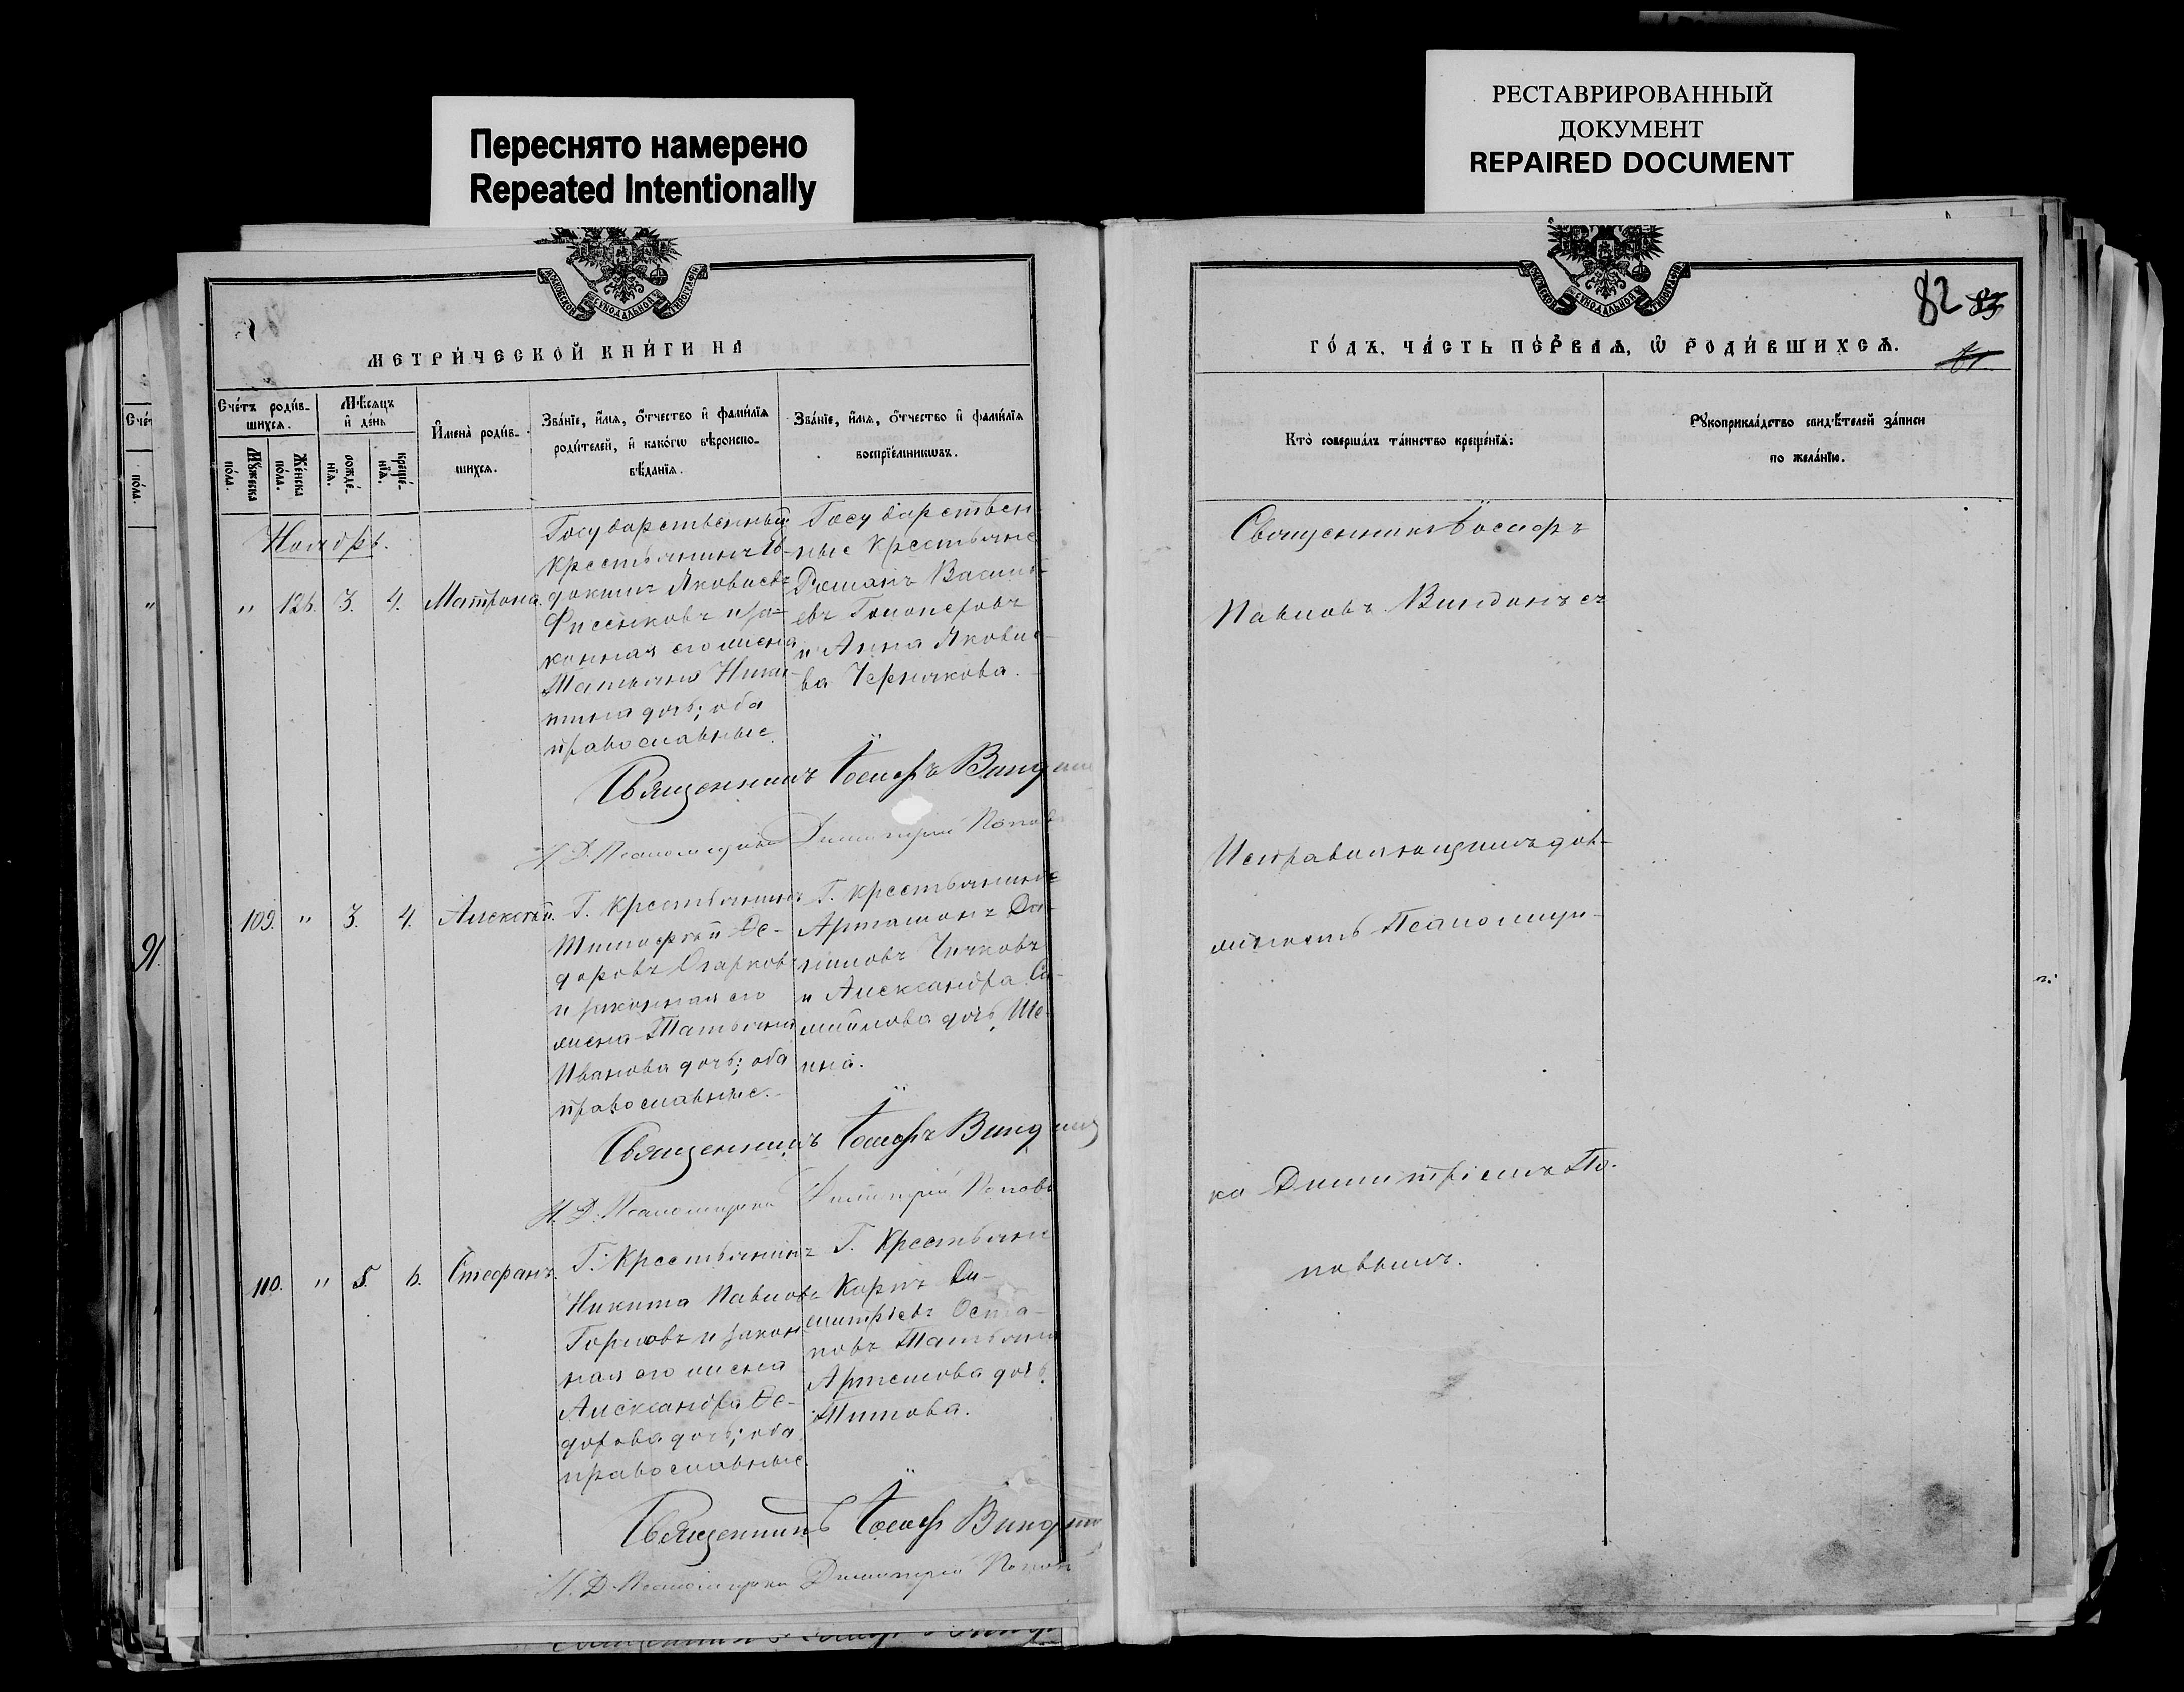 Переснято намерено
Repeated Intentionally
РЕСТАВРИРОВАННЫЙ
ДОКУМЕНТ
REPAIRED DOCUMENT
МОСКОВСКОЙ СѴНОДАЛЬНОЙ ТИПОГРАФІИ
МЕТРИ́ЧЕСКОЙ КНИ́ГИ НА
Сче́тъ роди́в-
шихсѧ.
Мꙋжеска по́ла.
Же́нска по́ла.
Мѣ́сѧцъ и҆ де́нь
рожде́-нїѧ.
креще́-нїѧ.
И҆мена̀ роди́в-
шихсѧ.
Зва́нїе, и҆́мѧ, ѻ҆́тчество и҆ фами́лїѧ
роди́телей, и҆ како́гѡ вѣроиспо-
вѣ́данїѧ.
Зва́нїе, и҆́мѧ, ѻ҆́тчество и҆ фами́лїѧ
воспрїе́мникѡвъ.
Ноябрь.
" 126. 3. 4. Матрона.
Государственный
крестьянинъ Ев-
докимъ Яковлевъ
Фисенковъ и за-
конная его жена
Татьяна Ники-
тина дочь; оба
православные.
Государствен
ные крестьяне
Романъ Василь-
евъ
и Анна Яковле-
ва Чернякова.
Священникъ Іосифъ
И. Д. Псаломщика Димитрій Поповъ
109. " 3. 4. Алексѣй.
Г. крестьянинъ
Тимофей Ѳе-
доровъ Огарковъ
и законная его
жена Татьяна
Иванова дочь; оба
православные.
Г. крестьянине
Артамонъ Да-
ниловъ
и Александра
дочь Ше-
ина.
Священникъ Іосифъ
И. Д. Псаломщика Димитрій Поповъ
110. " 5. 6. Стефанъ.
Г. Крестьянинъ
Никита Павловъ
Горловъ и закон
ная его жена
Александра Ѳе-
дорова дочь; оба
православные.
Г. Крестьяне
Карпъ Ди-
митріевъ Оста-
повъ Татьяна
Артемова дочь
Титова.
Священникъ Іосифъ
И. Д. Псаломщика Димитрій Поповъ
91.
82
МОСКОВСКОЙ СѴНОДАЛЬНОЙ ТИПОГРАФІИ
ГО́ДЪ. ЧА́СТЬ ПЕ́РВАѦ, Ѡ҆ РОДИ́ВШИХСѦ.
Кто̀ соверша́лъ та́инство креще́нїѧ:
Рꙋкоприкла́дство свидѣ́телей за́писи
по жела́нїю.
Священникъ Іосифъ
Павловъ
Исправляющимъ дол-
жность Псаломщи-
ка Димитріемъ По-
повымъ.